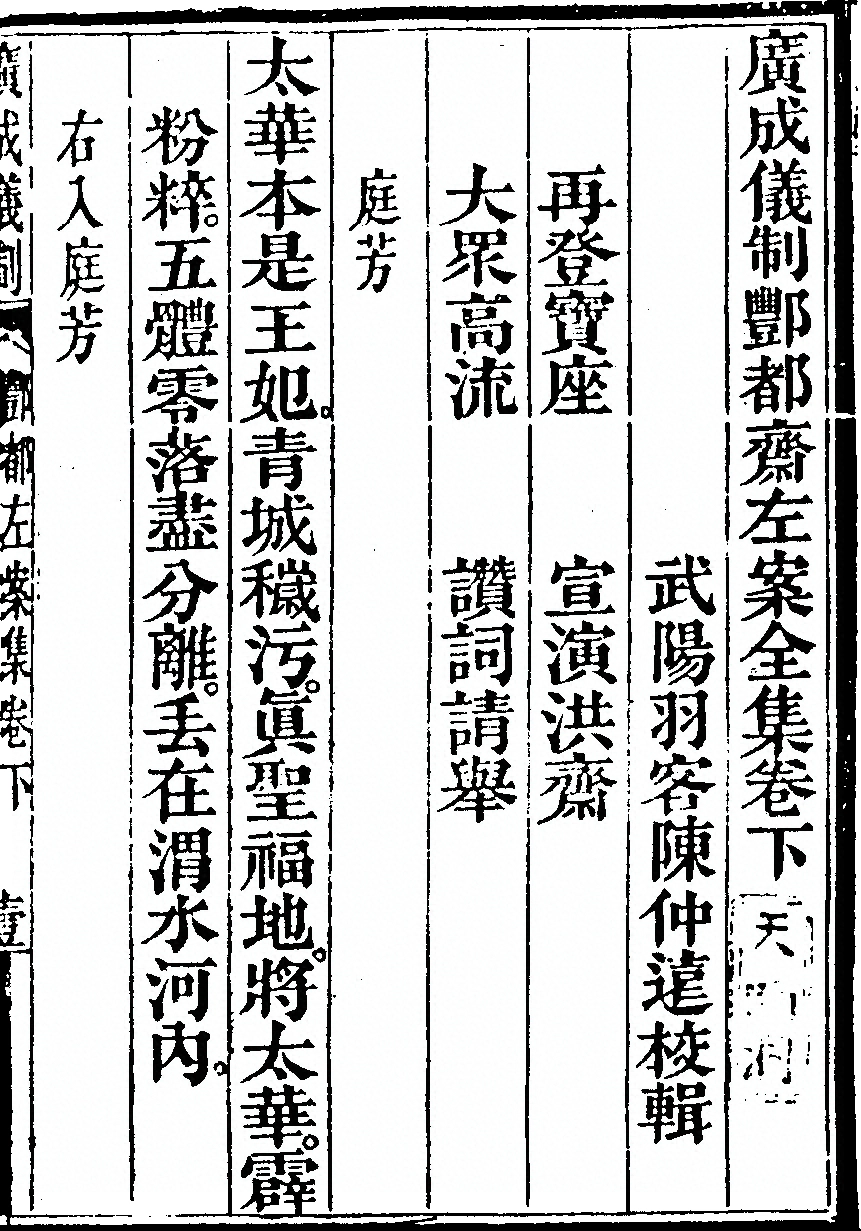 廣成儀制酆都齋左案全集卷下
武陽羽客陳仲遠校輯
再登寶座　宣演洪齋
大眾高流　讚詞請舉
庭芳
太華本是王妃。青城穢污。眞聖福地。將太華。霹
粉粹。五體零落盡分離。丟在渭水河內。
右入庭芳
廣成儀制
酆都左案集卷下
壹